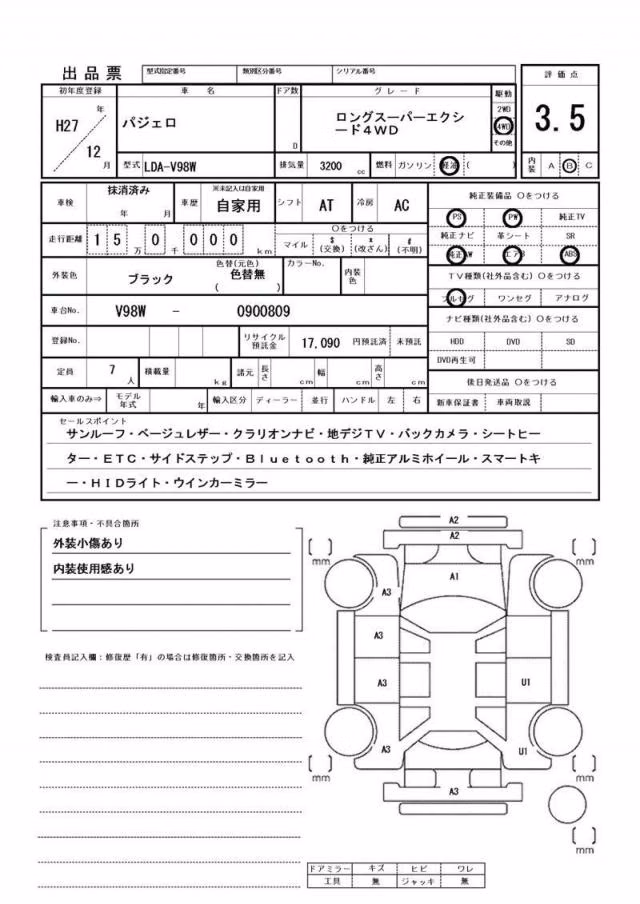 出品票 型式指定番号 類別区分番号 シリアル番号 評価点
初年度登録 車名 ドア数 グレード 駆動
H27 年 パジェロ D ロングスーパーエクシ 2WD 3.5
12 月 ード4WD 4WD
その他
型式 LDA-V98W 排気量 3200 cc 燃料 ガソリン 軽油 ( ) 内装 A B C
車検 抹消済み 年 月 車歴 ※未記入は自家用 自家用 シフト AT 冷房 AC 純正装備品 〇をつける
PS PW 純正TV
走行距離 1 5 万 0 千 0 0 0 km 〇をつける
マイル $ (交換) x (改ざん) # (不明) 純正ナビ 革シート SR
純正AW エアB ABS
外装色 ブラック 色替(元色) 色替無 ( ) カラーNo. 内装色 TV種類(社外品含む) 〇をつける
フルセグ ワンセグ アナログ
車台No. V98W - 0900809 ナビ種類(社外品含む) 〇をつける
登録No. リサイクル預託金 17,090 円預託済 未預託 HDD DVD SD
DVD再生可
定員 7 人 積載量 kg 諸元 長さ cm 幅 cm 高さ cm 後日発送品 〇をつける
輸入車のみ⇒ モデル年式 年 輸入区分 ディーラー 並行 ハンドル 左 右 新車保証書 車両取説
セールスポイント
サンルーフ・ベージュレザー・クラリオンナビ・地デジTV・バックカメラ・シートヒー
ター・ETC・サイドステップ・Bluetooth・純正アルミホイール・スマートキ
ー・HIDライト・ウインカーミラー
注意事項・不具合箇所
外装小傷あり
内装使用感あり
検査員記入欄：修復歴「有」の場合は修復箇所・交換箇所を記入
A2
A2
[ ] mm [ ] mm
A1
A3
A3
A3 U1
A3 U1
[ ] mm [ ] mm
A3
[ ] mm
ドアミラー キズ ヒビ ワレ
工具 無 ジャッキ 無